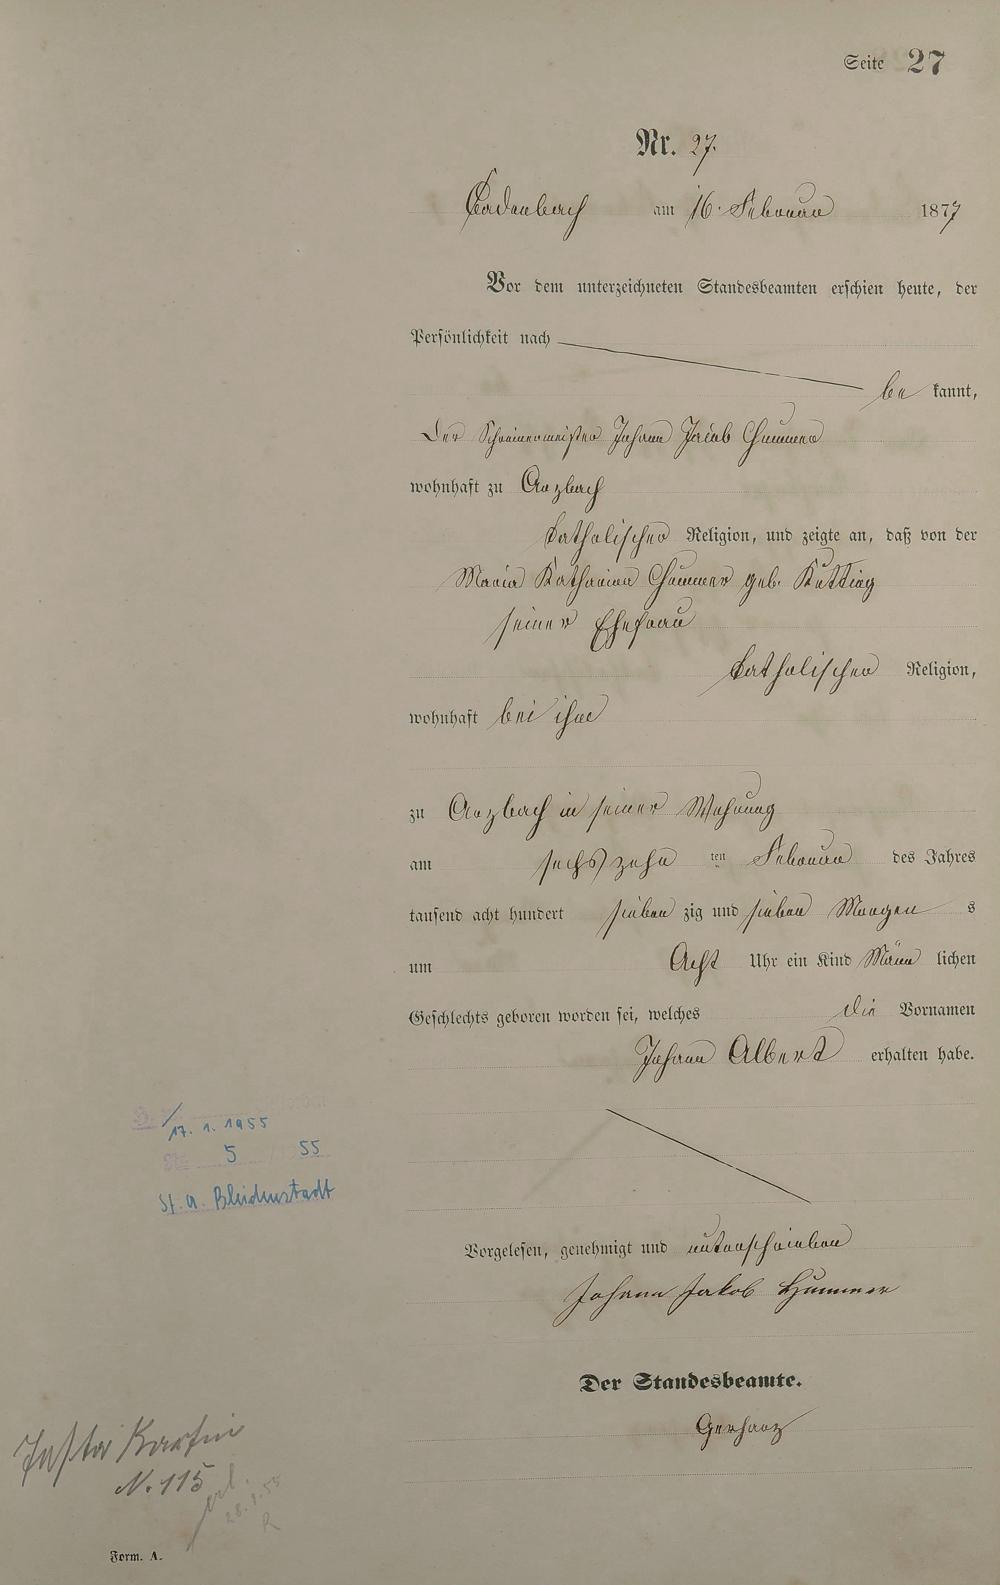 Seite 27
Nr. 27.
Cadenbach am 16. Februar 1877
Vor dem unterzeichneten Standesbeamten erschien heute, der
Persönlichkeit nach
be kannt,
Der Schreinermeister Johann Jacob Hummer
wohnhaft zu Arzbach
katholischer Religion, und zeigte an, daß von der
Maria Katharina Hummer geb. Kütting
seiner Ehefrau
katholischer Religion,
wohnhaft bei ihm
zu Arzbach in seiner Wohnung
am sechszehn ten Februar des Jahres
tausend acht hundert sieben zig und sieben Morgen s
um Acht Uhr ein Kind Männ lichen
Geschlechts geboren worden sei, welches die Vornamen
Johann Albert erhalten habe.
17. 1. 1955
5 55
St. A. Bleidenstadt
Vorgelesen, genehmigt und unterschrieben
Johann Jakob Hummer
Der Standesbeamte.
Gerharz
N. 115
erl.
28.1.55
Form. A.